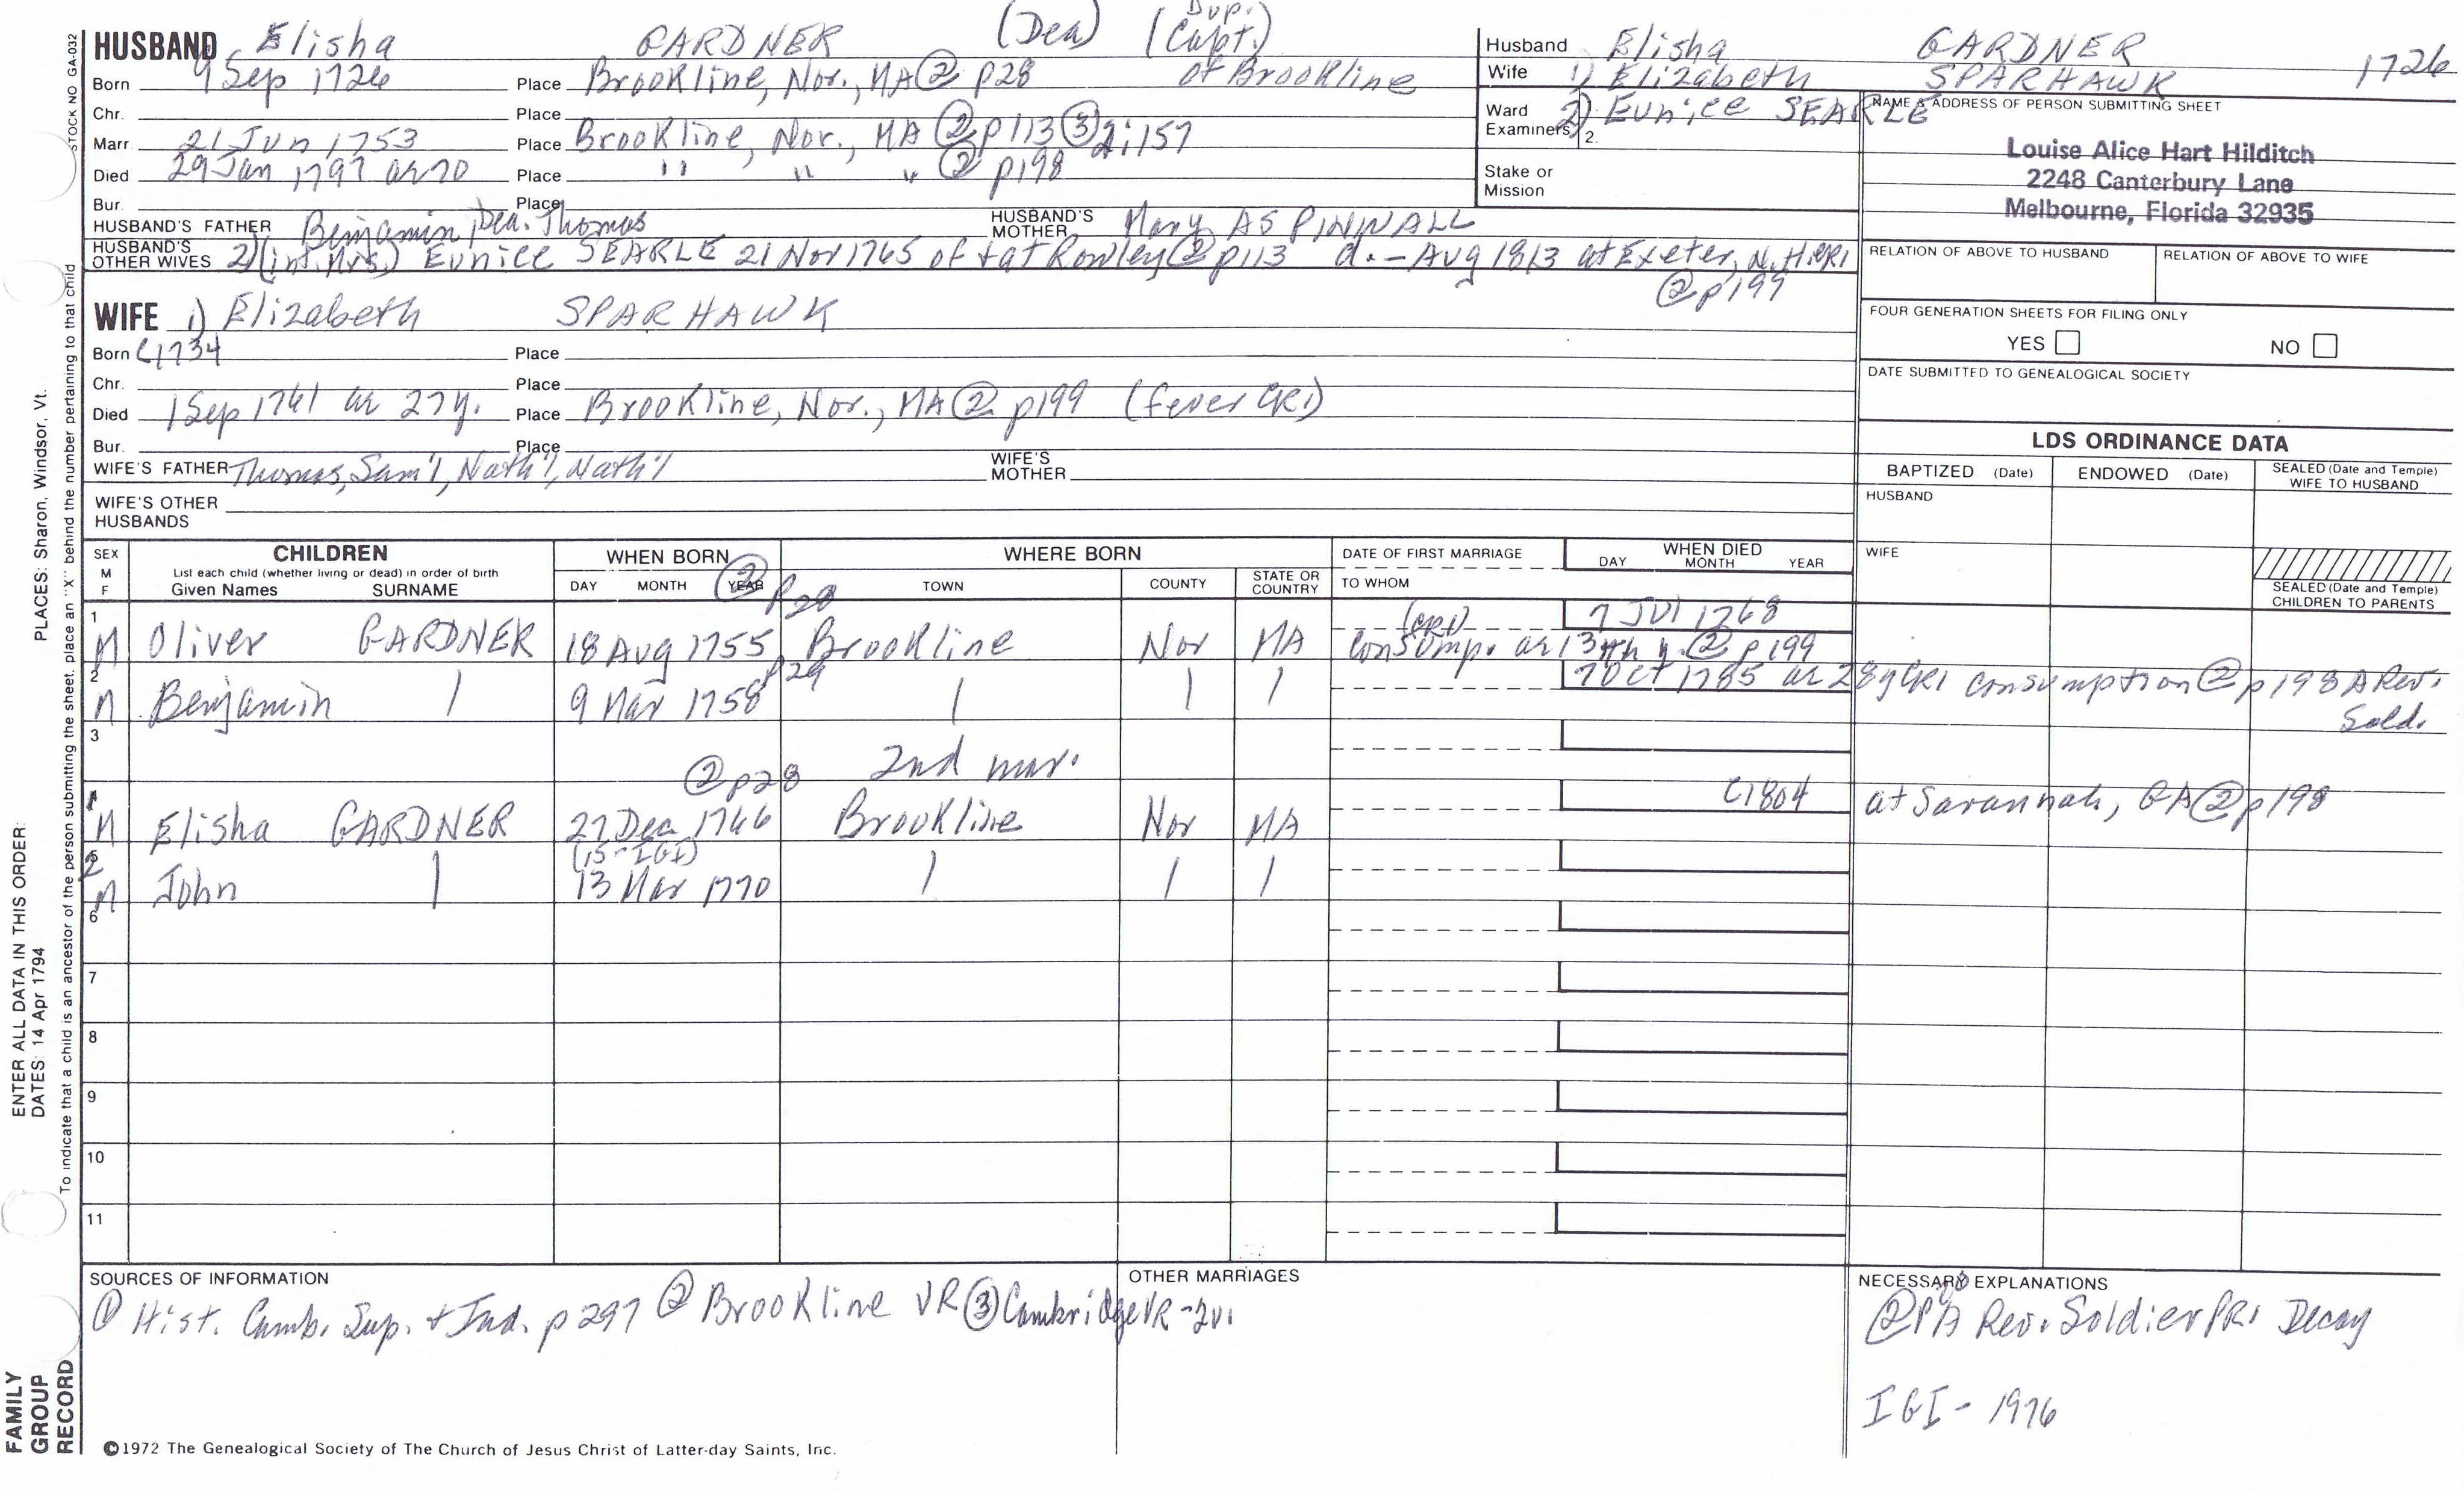 Dup.
HUSBAND Elisha GARDNER (Dea) (Capt.)
Born 9 Sep 1726 Place Brookline, Nor., MA @ p28 of Brookline
Chr. Place
Marr. 21 Jun 1753 Place Brookline, Nor., MA ② p113 ③ 2:157
Died 29 Jan 1797 ae 70 Place " " " ② p198
Bur. Place
HUSBAND'S FATHER Benjamin, Dea. Thomas HUSBAND'S MOTHER Mary ASPINWALL
HUSBAND'S OTHER WIVES 2) (int. Mrs.) Eunice SEARLE 21 Nov 1765 of + at Rowley ② p113 d. - Aug 1813 at Exeter, N.H. CR1
② p199
WIFE 1) Elizabeth SPARHAWK
Born C1734 Place
Chr. Place
Died 1 Sep 1761 ae 27y. Place Brookline, Nor., MA ② p199 (fever CR1)
Bur. Place
WIFE'S FATHER Thomas, Sam'l, Nath'l, Nath'l WIFE'S MOTHER
WIFE'S OTHER HUSBANDS
Husband Elisha GARDNER
Wife 1) Elizabeth SPARHAWK 1726
2) Eunice SEARLE
Ward
Examiners 2.
Stake or
Mission
NAME & ADDRESS OF PERSON SUBMITTING SHEET
Louise Alice Hart Hilditch
2248 Canterbury Lane
Melbourne, Florida 32935
RELATION OF ABOVE TO HUSBAND RELATION OF ABOVE TO WIFE
FOUR GENERATION SHEETS FOR FILING ONLY
YES NO
DATE SUBMITTED TO GENEALOGICAL SOCIETY
LDS ORDINANCE DATA
BAPTIZED (Date) ENDOWED (Date) SEALED (Date and Temple) WIFE TO HUSBAND
HUSBAND
WIFE
SEALED (Date and Temple) CHILDREN TO PARENTS
SEX M F CHILDREN WHEN BORN WHERE BORN DATE OF FIRST MARRIAGE WHEN DIED
List each child (whether living or dead) in order of birth
Given Names SURNAME DAY MONTH YEAR TOWN COUNTY STATE OR COUNTRY TO WHOM DAY MONTH YEAR
② p28
1 M Oliver GARDNER 18 Aug 1755 Brookline Nor MA (CR1) 7 Jul 1768
consump. ae 13th y. ② p199
p29
2 M Benjamin | 9 Mar 1758 | | | 7 Oct 1785 ae 28y CR1 consumption ② p198 A Rev.
Sold.
3
② p28 2nd mar.
1 M Elisha GARDNER 27 Dec 1766 Brookline Nor MA C1804 at Savannah, GA ② p198
(15-IGI)
5 2 M John | 13 Mar 1770 | | |
6
7
8
9
10
11
SOURCES OF INFORMATION
① Hist. Camb. Sup. + Ind. p 297 ② Brookline VR ③ Cambridge VR-2v.
OTHER MARRIAGES
NECESSARY EXPLANATIONS
A Rev. Soldier PR1 Decay
IGI - 1976
©1972 The Genealogical Society of The Church of Jesus Christ of Latter-day Saints, Inc.
STOCK NO GA-032
PLACES: Sharon, Windsor, Vt.
ENTER ALL DATA IN THIS ORDER:
DATES: 14 Apr 1794
To indicate that a child is an ancestor of the person submitting the sheet, place an "X" behind the number pertaining to that child
FAMILY
GROUP
RECORD